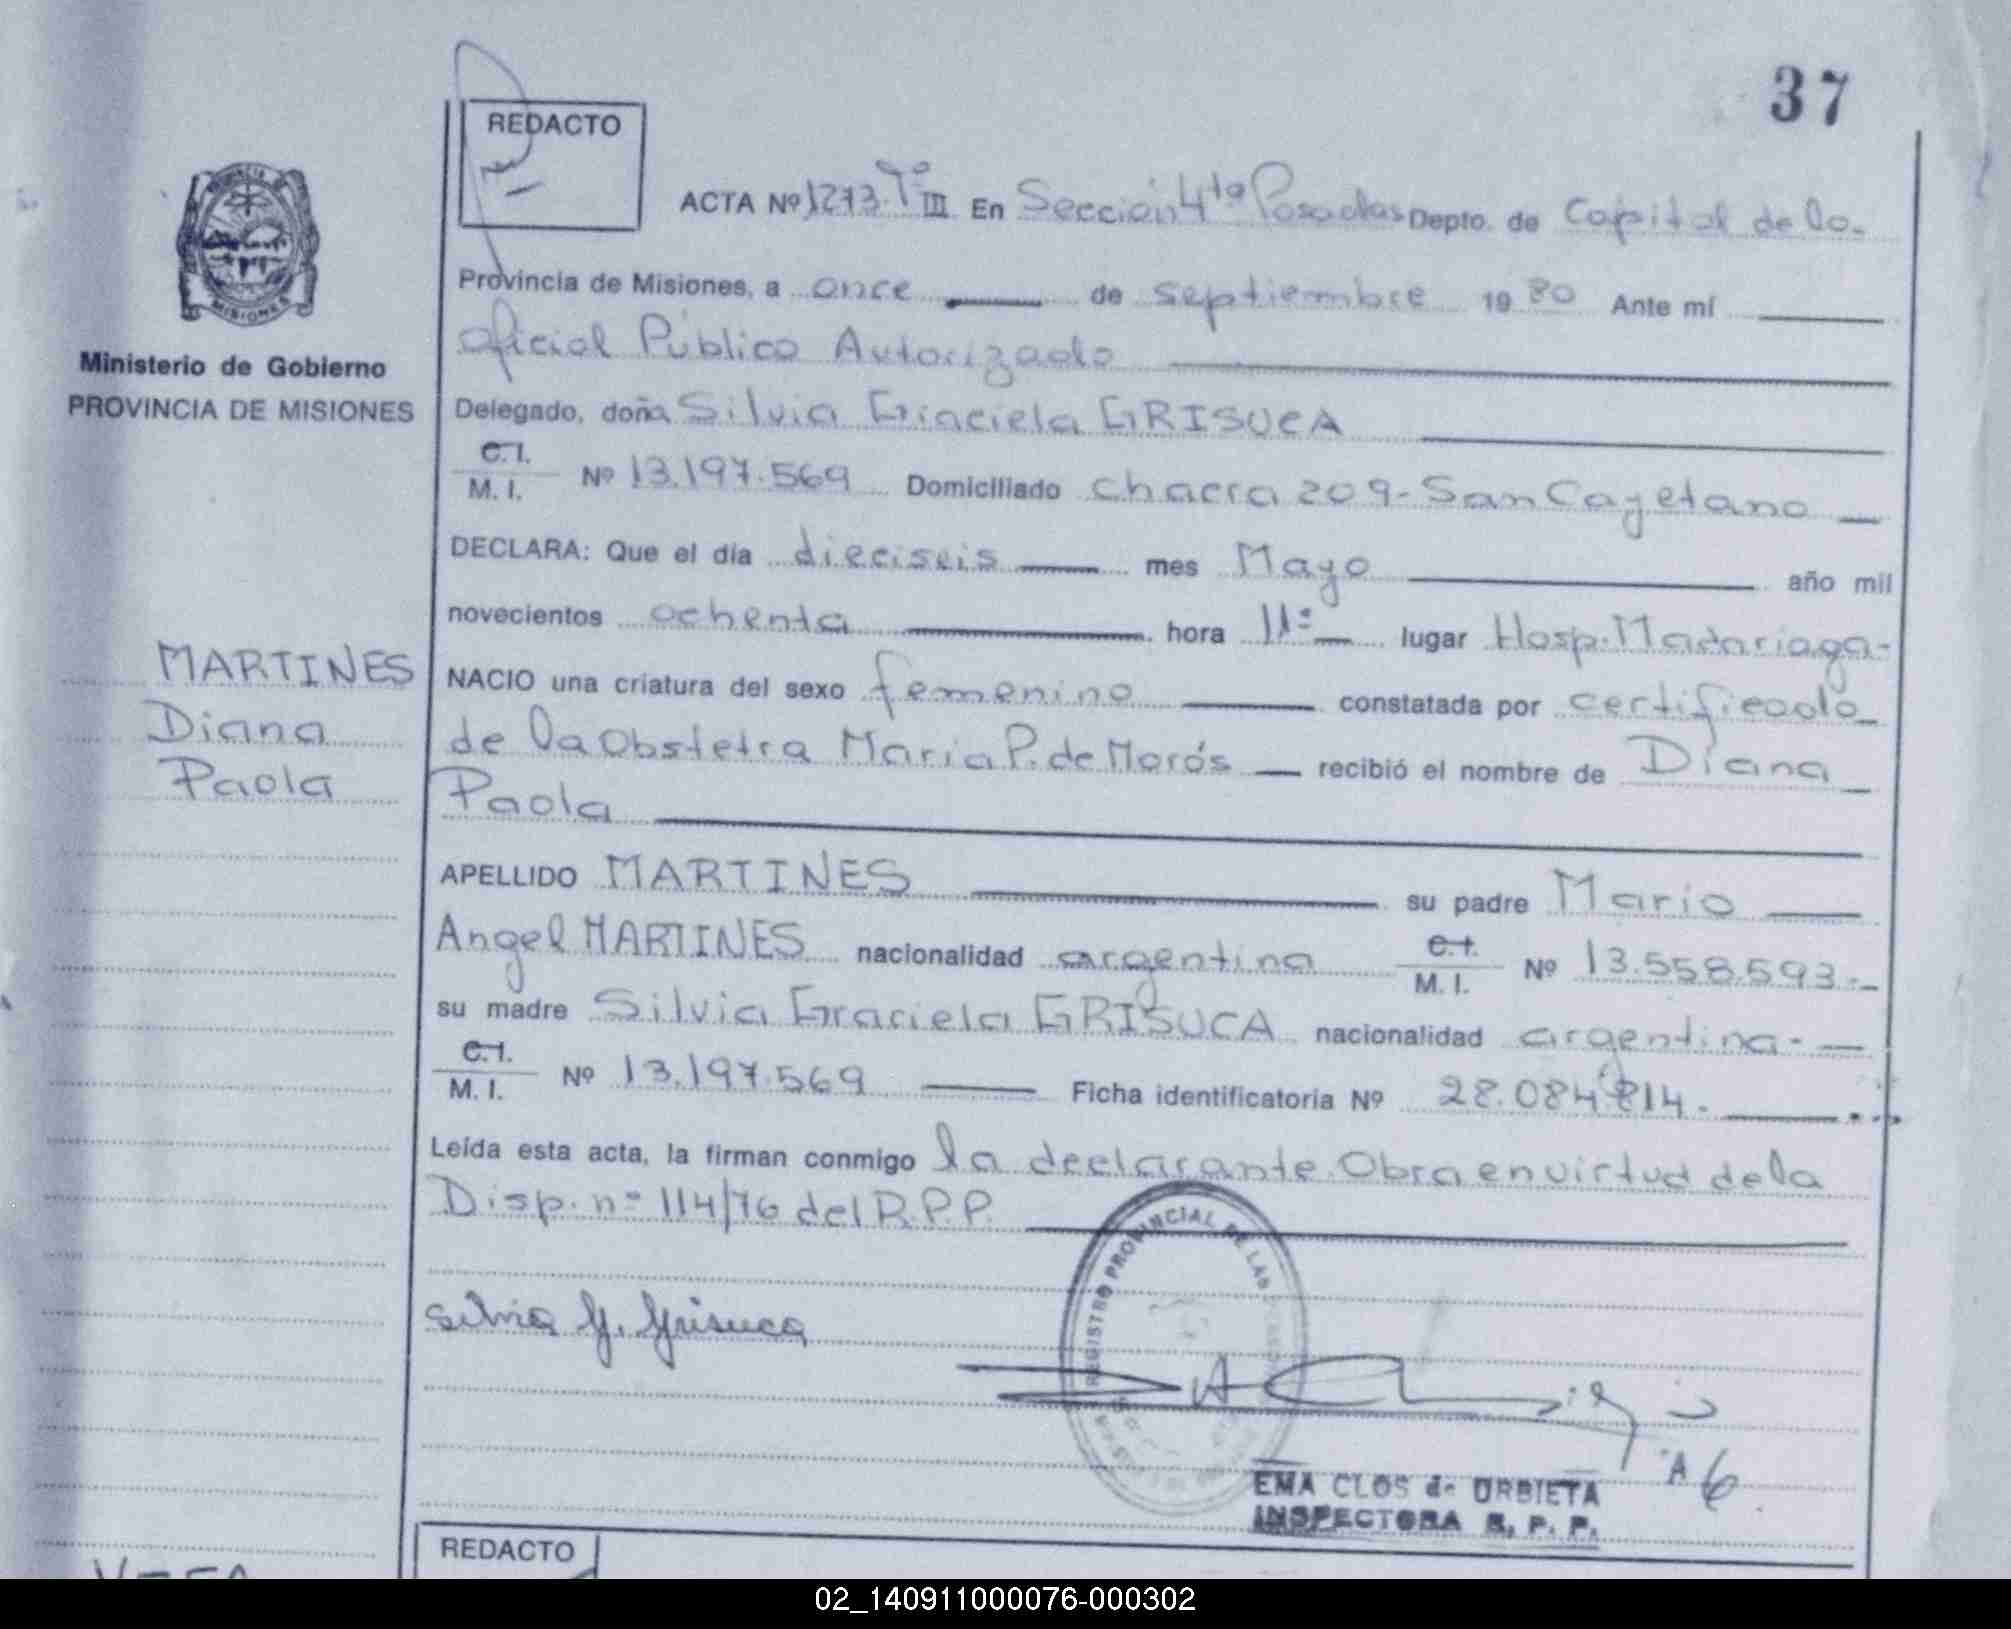 37
REDACTO
ACTA Nº 1273. Tº III En Sección 4ta Posadas Depto. de Capital de la
Provincia de Misiones, a once de septiembre 1980 Ante mí
Oficial Público Autorizado
Delegado, doña Silvia Graciela GRISUCA
C.I.
M. I. Nº 13.197.569 Domiciliado chacra 209-San Cayetano
DECLARA: Que el día dieciseis mes Mayo año mil
novecientos ochenta hora 11º lugar Hosp. Madariaga-
NACIO una criatura del sexo femenino constatada por certificado
de la Obstetra Maria P. de Morós recibió el nombre de Diana
Paola
APELLIDO MARTINES su padre Mario
Angel MARTINES nacionalidad argentina C.I. M. I. Nº 13.558.593.-
su madre Silvia Graciela GRISUCA nacionalidad argentina-
C.I.
M. I. Nº 13.197.569 Ficha identificatoria Nº 28.084.814.
Leída esta acta, la firman conmigo la declarante. Obra en virtud de la
Disp. nº 114/76 del R.P.P.
Silvia G. Grisuca
REGISTRO PROVINCIAL DE LAS
EMA CLOS de URBIETA
INSPECTORA R. P. P.
PROVINCIA DE
MISIONES
Ministerio de Gobierno
PROVINCIA DE MISIONES
MARTINES
Diana
Paola
REDACTO
02_140911000076-000302